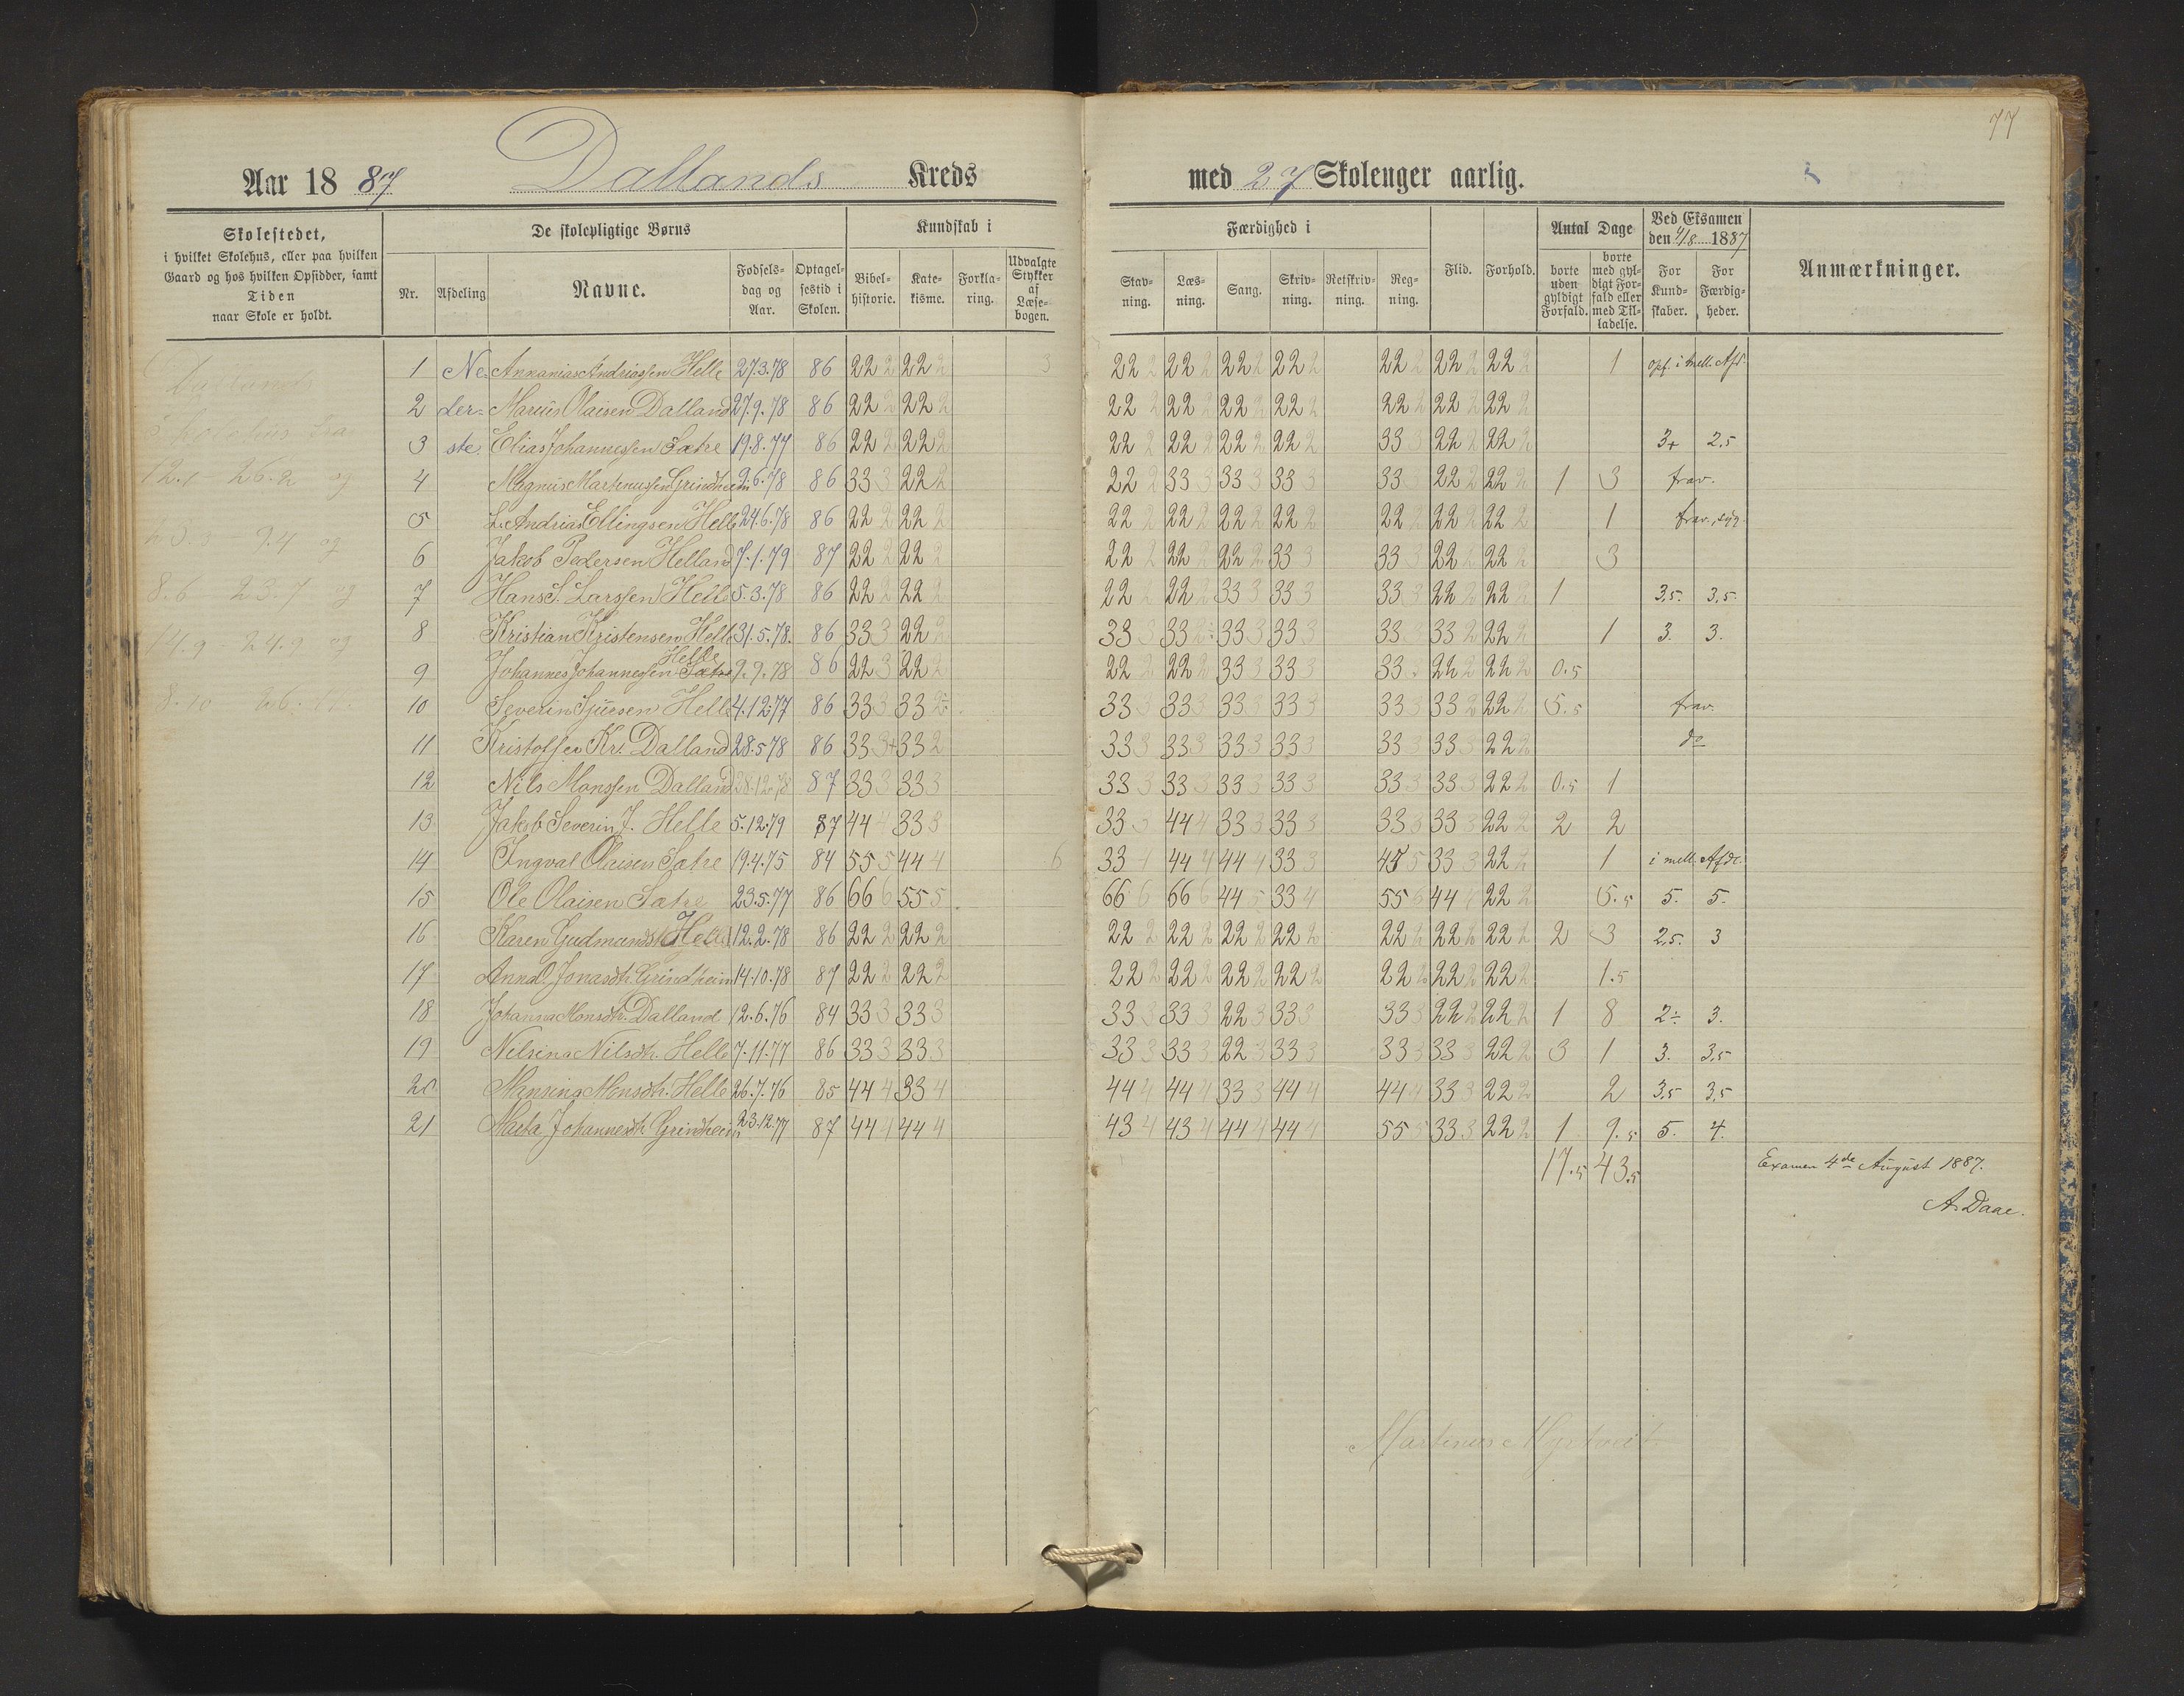 77
Aar 1887 Dallands Kreds med 27 Skolenger aarlig.
Skolestedet, i hvilket Skolehus, eller paa hvilken Gaard og hos hvilken Opsidder, samt Tiden naar Skole er holdt.
De skolepligtige Børns
Nr. Afdeling Navne. Fødselsdag og Aar. Optagelsestid i Skolen.
Kundskab i
Bibelhistorie. Katekisme. Forklaring. Udvalgte Stykker af Læsebogen.
Færdighed i
Stavning. Læsning. Sang. Skrivning. Retskrivning. Regning.
Flid. Forhold.
Antal Dage
borte uden gyldigt Forfald. borte med gyldigt Forfald eller med Tilladelse.
Ved Eksamen den 4/8 1887
For Kundskaber. For Færdigheder.
Anmærkninger.
Dallands
Skolehus fra
12.1 26.2 og
9.4 og
8.6 23.7 og
14.9 24.9 og
8.10
1 Ne- Annanias Andriassen Helle 27.3.78 86 22 2 22 2 3 22 2 22 2 22 2 22 2 22 2 22 2 22 2 1 opf. i mell. Afd.
2 der- Marius Olaisen Dalland 27.9.78 86 22 2 22 2 22 2 22 2 22 2 22 2 22 2 22 2 22 2
3 ste. Elias Johannessen Sætre 19.8.77 86 22 2 22 2 22 2 22 2 22 2 22 2 33 3 22 2 22 2 3+ 2,5
4 Magnus Martinussen Grindheim 2.6.78 86 33 3 22 2 22 2 33 3 33 3 33 3 33 3 22 2 22 2 1 3 frav.
5 L. Andrias Ellingsen Helle 24.6.78 86 22 2 22 2 22 2 22 2 22 2 22 2 22 2 22 2 22 2 1 frav., syg.
6 Jakob Pedersen Helland 7.1.79 87 22 2 22 2 22 2 22 2 22 2 33 3 33 3 22 2 22 2 3
7 Hans S. Larssen Helle 5.3.78 86 22 2 22 2 22 2 22 2 33 3 33 3 33 3 22 2 22 2 1 3,5. 3,5.
8 Kristian Kristensen Helle 31.5.78. 86 33 3 22 2 33 3 33 2÷ 33 3 33 3 33 3 33 2 22 2 1 3. 3.
9 Johannes Johannessen Sætre Helle 2.9.78 86 22 3 22 2 22 2 22 2 33 3 33 3 33 22 2 22 2 0.5
10 Severin Sjursen Helle 4.12.77 86 33 3 33 2÷ 33 3 33 3 33 3 33 3 33 3 33 2 22 2 5.5 frav.
11 Kristoffer Kr. Dalland 28.5.78 86 33 3+ 33 2 33 3 33 3 33 3 33 3 33 3 33 3 22 2 do
12 Nils Monssen Dalland 28.12.78 87 33 3 33 3 33 3 33 3 33 3 33 3 33 3 33 3 22 2 0.5 1
13 Jakob Severin J. Helle 5.12.79 87 44 4 33 3 33 3 44 4 33 3 33 3 33 3 33 3 22 2 2 2
14 Ingval Olaisen Sætre 19.4.75 84 55 5 44 4 6 33 4 44 4 44 4 33 3 45 5 33 3 22 2 1 i mell. Afde.
15 Ole Olaisen Sætre 23.5.77 86 66 6 55 5 66 6 66 6 44 5 33 4 55 6 44 4 22 2 5.5 5. 5.
16 Karen Gudmundsd. Helle 12.2.78 86 22 2 22 2 22 2 22 2 22 2 22 2 22 2 22 2 22 2 2 3 2,5. 3
17 Anna O. Jonasdtr. Grindheim 14.10.78 87 22 2 22 2 22 2 22 2 22 2 22 2 22 2 22 2 22 2 1.5
18 Johanna Monsdtr. Dalland 12.6.76 84 33 3 33 3 33 3 33 3 22 3 33 3 33 3 22 2 22 2 1 8 2÷ 3.
19 Nilsina Nilsdtr. Helle 7.11.77 86 33 3 33 3 33 3 33 3 22 3 33 3 33 3 33 3 22 2 3 1 3. 3,5
20 Monsina Monsdtr. Helle 26.7.76 85 44 4 33 4 44 4 44 4 33 3 44 4 44 4 33 3 22 2 2 3,5 3,5
21 Marta Johannesdtr. Grindheim 23.12.77 87 44 4 44 4 43 4 43 4 44 4 44 4 55 5 33 3 22 2 1 9.5 5. 4.
17.5 43.5
Examen 4de August 1887.
A. Daae.
Martinus Myrtveit